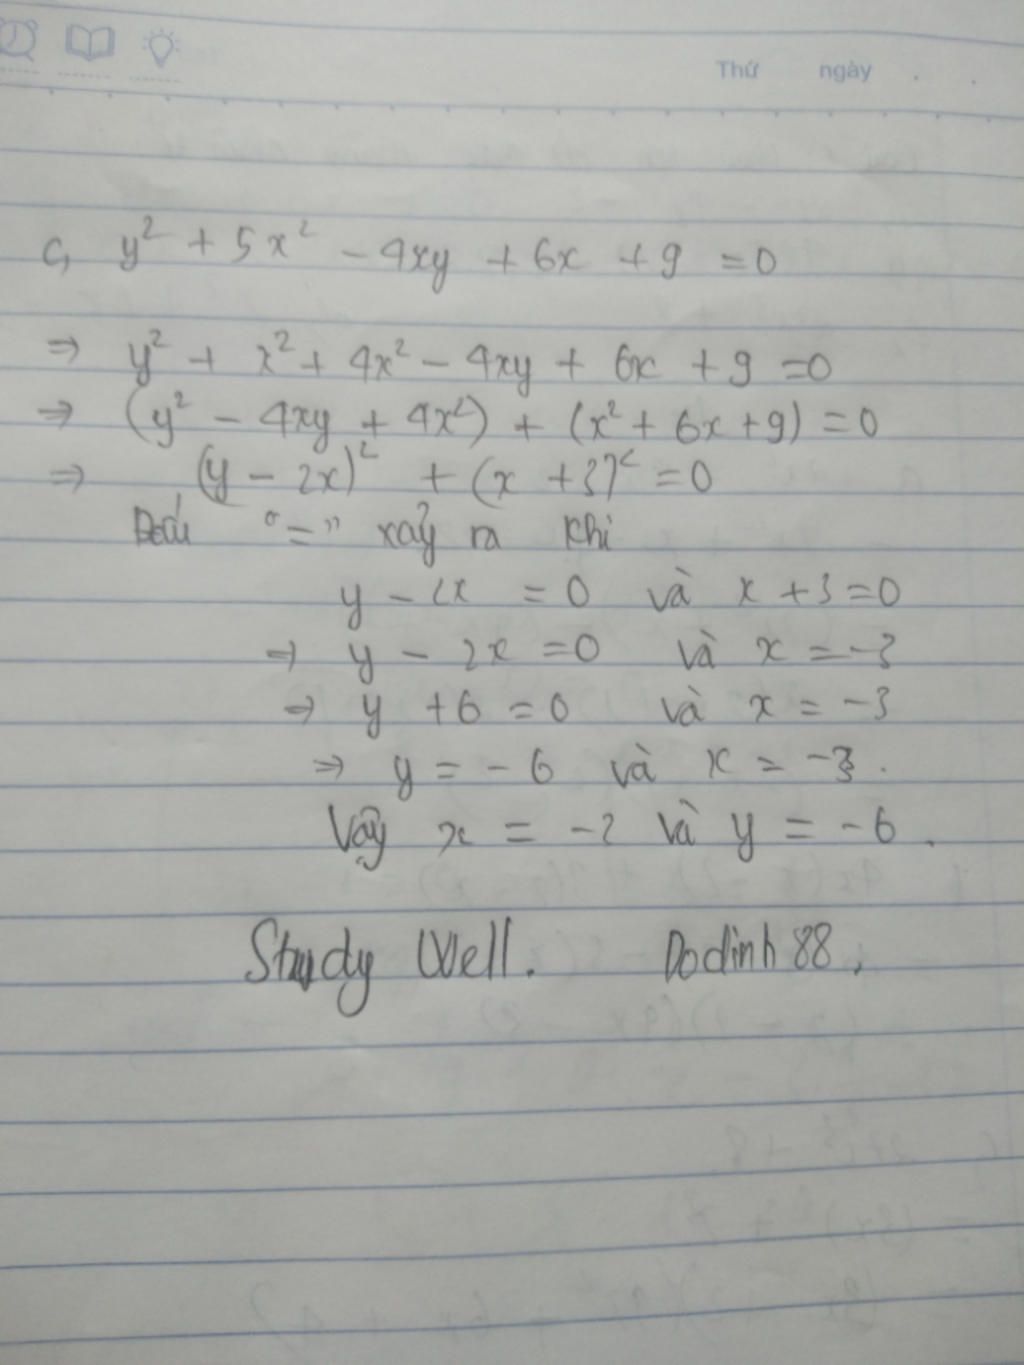 Thứ ngày . .
c, y² + 5x² - 4xy + 6x + 9 = 0
⇒ y² + x² + 4x² - 4xy + 6x + 9 = 0
⇒ (y² - 4xy + 4x²) + (x² + 6x + 9) = 0
⇒ (y - 2x)² + (x + 3)² = 0
Dấu "=" xảy ra khi
y - 2x = 0 và x + 3 = 0
⇒ y - 2x = 0 và x = -3
⇒ y + 6 = 0 và x = -3
⇒ y = -6 và x = -3.
Vậy x = -2 và y = -6.
Study Well. Dodinh 88.